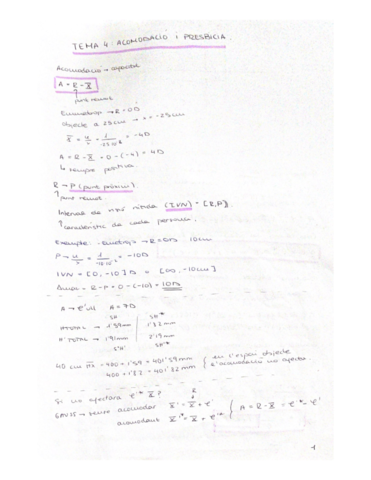 TEMA 4: ACOMODACIÓ I PRESBICIA.
Acomodació → capacitat
A = R - X̄
punt remot
Emmetrop → R = 0D
objecte a 25cm → x = -25cm
A = R - X̄ = 0 - (-4) = 4D
↳ sempre positiva.
R → P (punt pròxim)
punt remot
Interval de visió nítida (IVN) = [R,P].
característic de cada persona.
Exemple: emetrop → R = 0D 10cm
= -10D
IVN = [0, -10]D = [∞, -10cm]
Amax = R - P = 0 - (-10) = 10D
A = 7D
SH SH*
HTOTAL → 1'59mm 1'82mm
H'TOTAL → 1'91mm 2'19mm
S'H' SH'*
40 cm = 400 + 1'59 = 401'59mm en l'espai objecte
400 + 1'82 = 401'82mm l'acomodació no afecta.
Si no afectara
sense acomodar X̄' = X̄ + e'
acomodant X̄'* = X̄ + e'* A = R - X̄ = e'* - e'
1